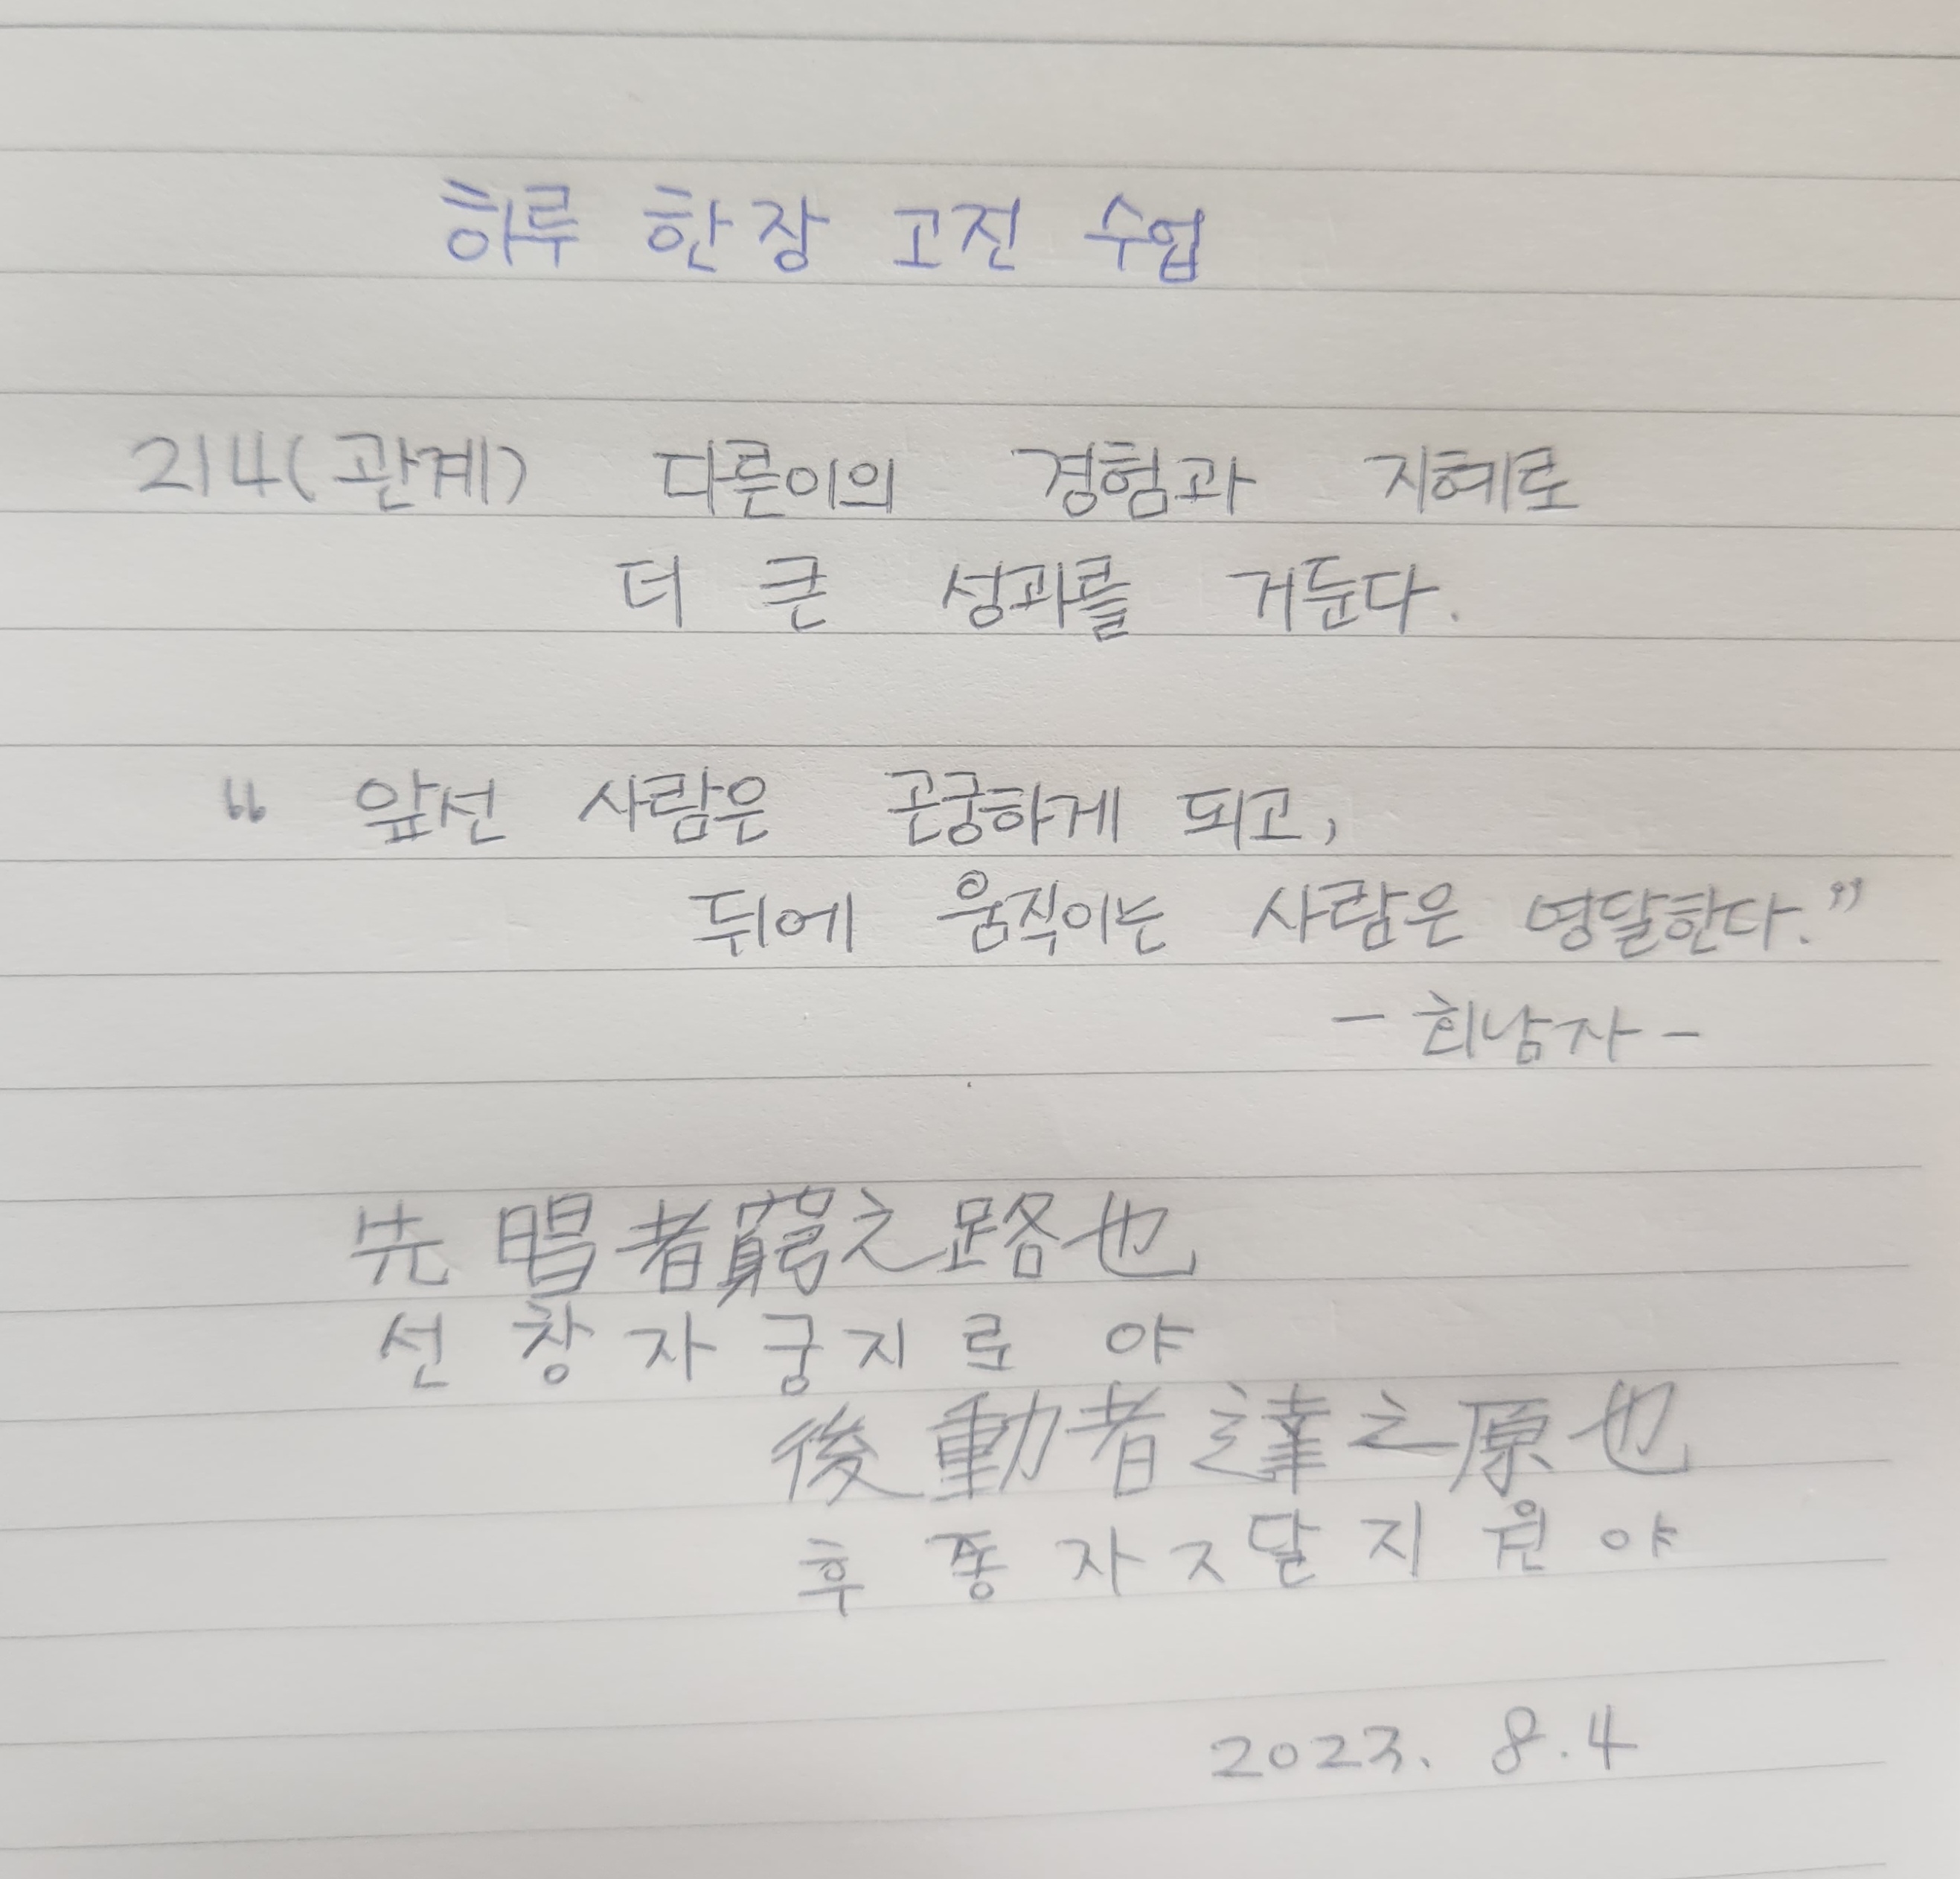 하루 한장 고전 수업
214(관계) 다른이의 경험과 지혜로
더 큰 성과를 거둔다.
“ 앞선 사람은 곤궁하게 되고,
뒤에 움직이는 사람은 영달한다.”
- 회남자 -
先唱者窮之路也
선창자궁지로야
後動者達之原也
후동자달지원야
2023. 8.4